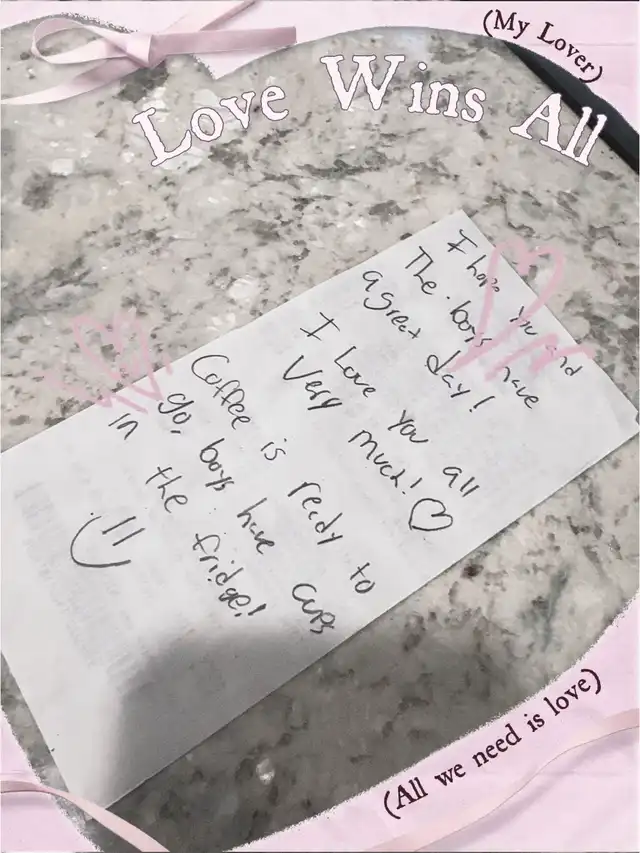 (My Lover)
Love Wins All
I hope you and
The boys have
a great day!
I love you all
Very much! ♡
Coffee is ready to
go, boys have cups
in the fridge!
(All we need is love)